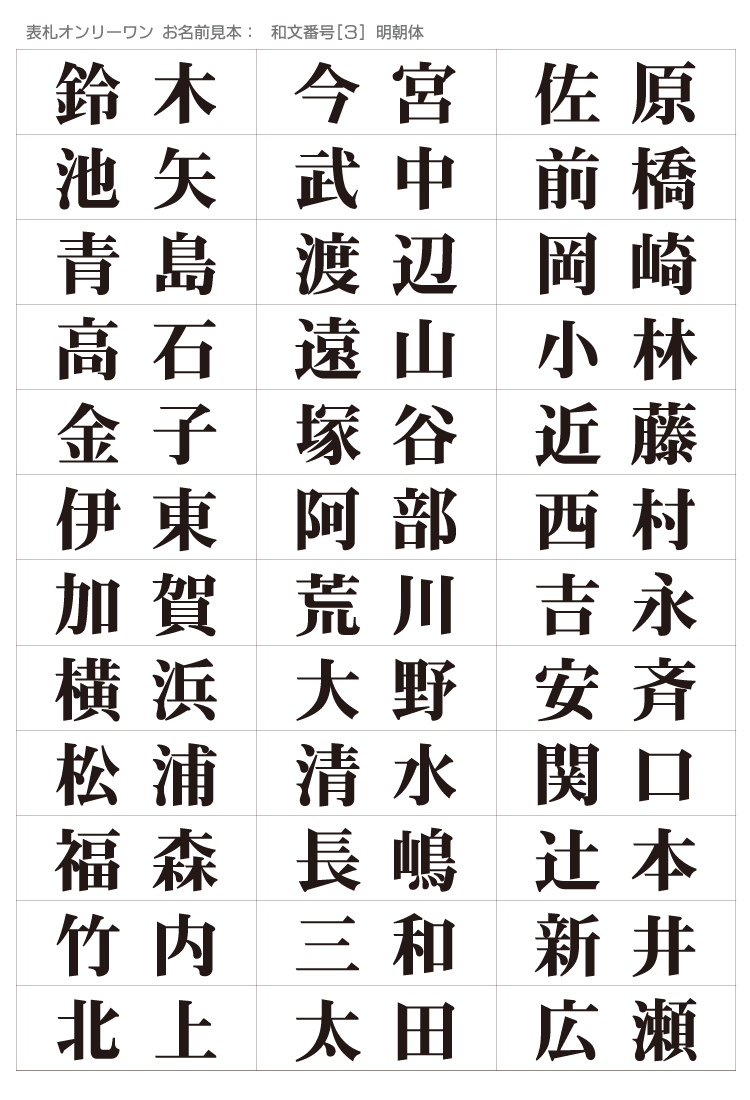 表札オンリーワン お名前見本： 和文番号[3] 明朝体
鈴木 今宮 佐原
池矢 武中 前橋
青島 渡辺 岡崎
高石 遠山 小林
金子 塚谷 近藤
伊東 阿部 西村
加賀 荒川 吉永
横浜 大野 安斉
松浦 清水 関口
福森 長嶋 辻本
竹内 三和 新井
北上 太田 広瀬